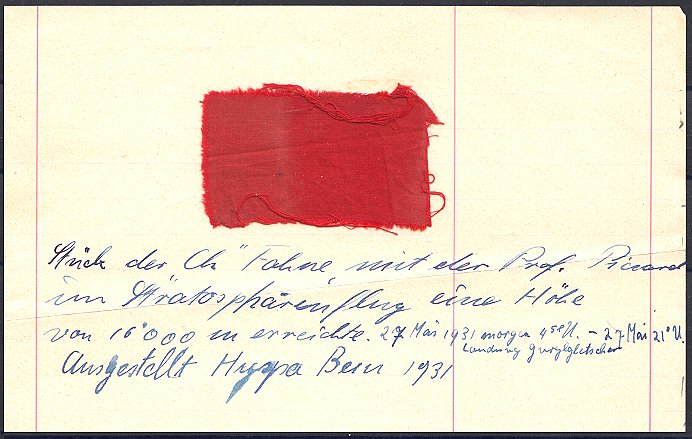 Stück der Ch" Fahne, mit der Prof. Piccard
im Stratosphärenflug eine Höhe
von 16'000 m erreichte. 27 Mai 1931 morgen 4⁵⁰ U. – 27 Mai 21⁰ U.
Landung Gurglgletscher
Ausgestellt Hyspa Bern 1931